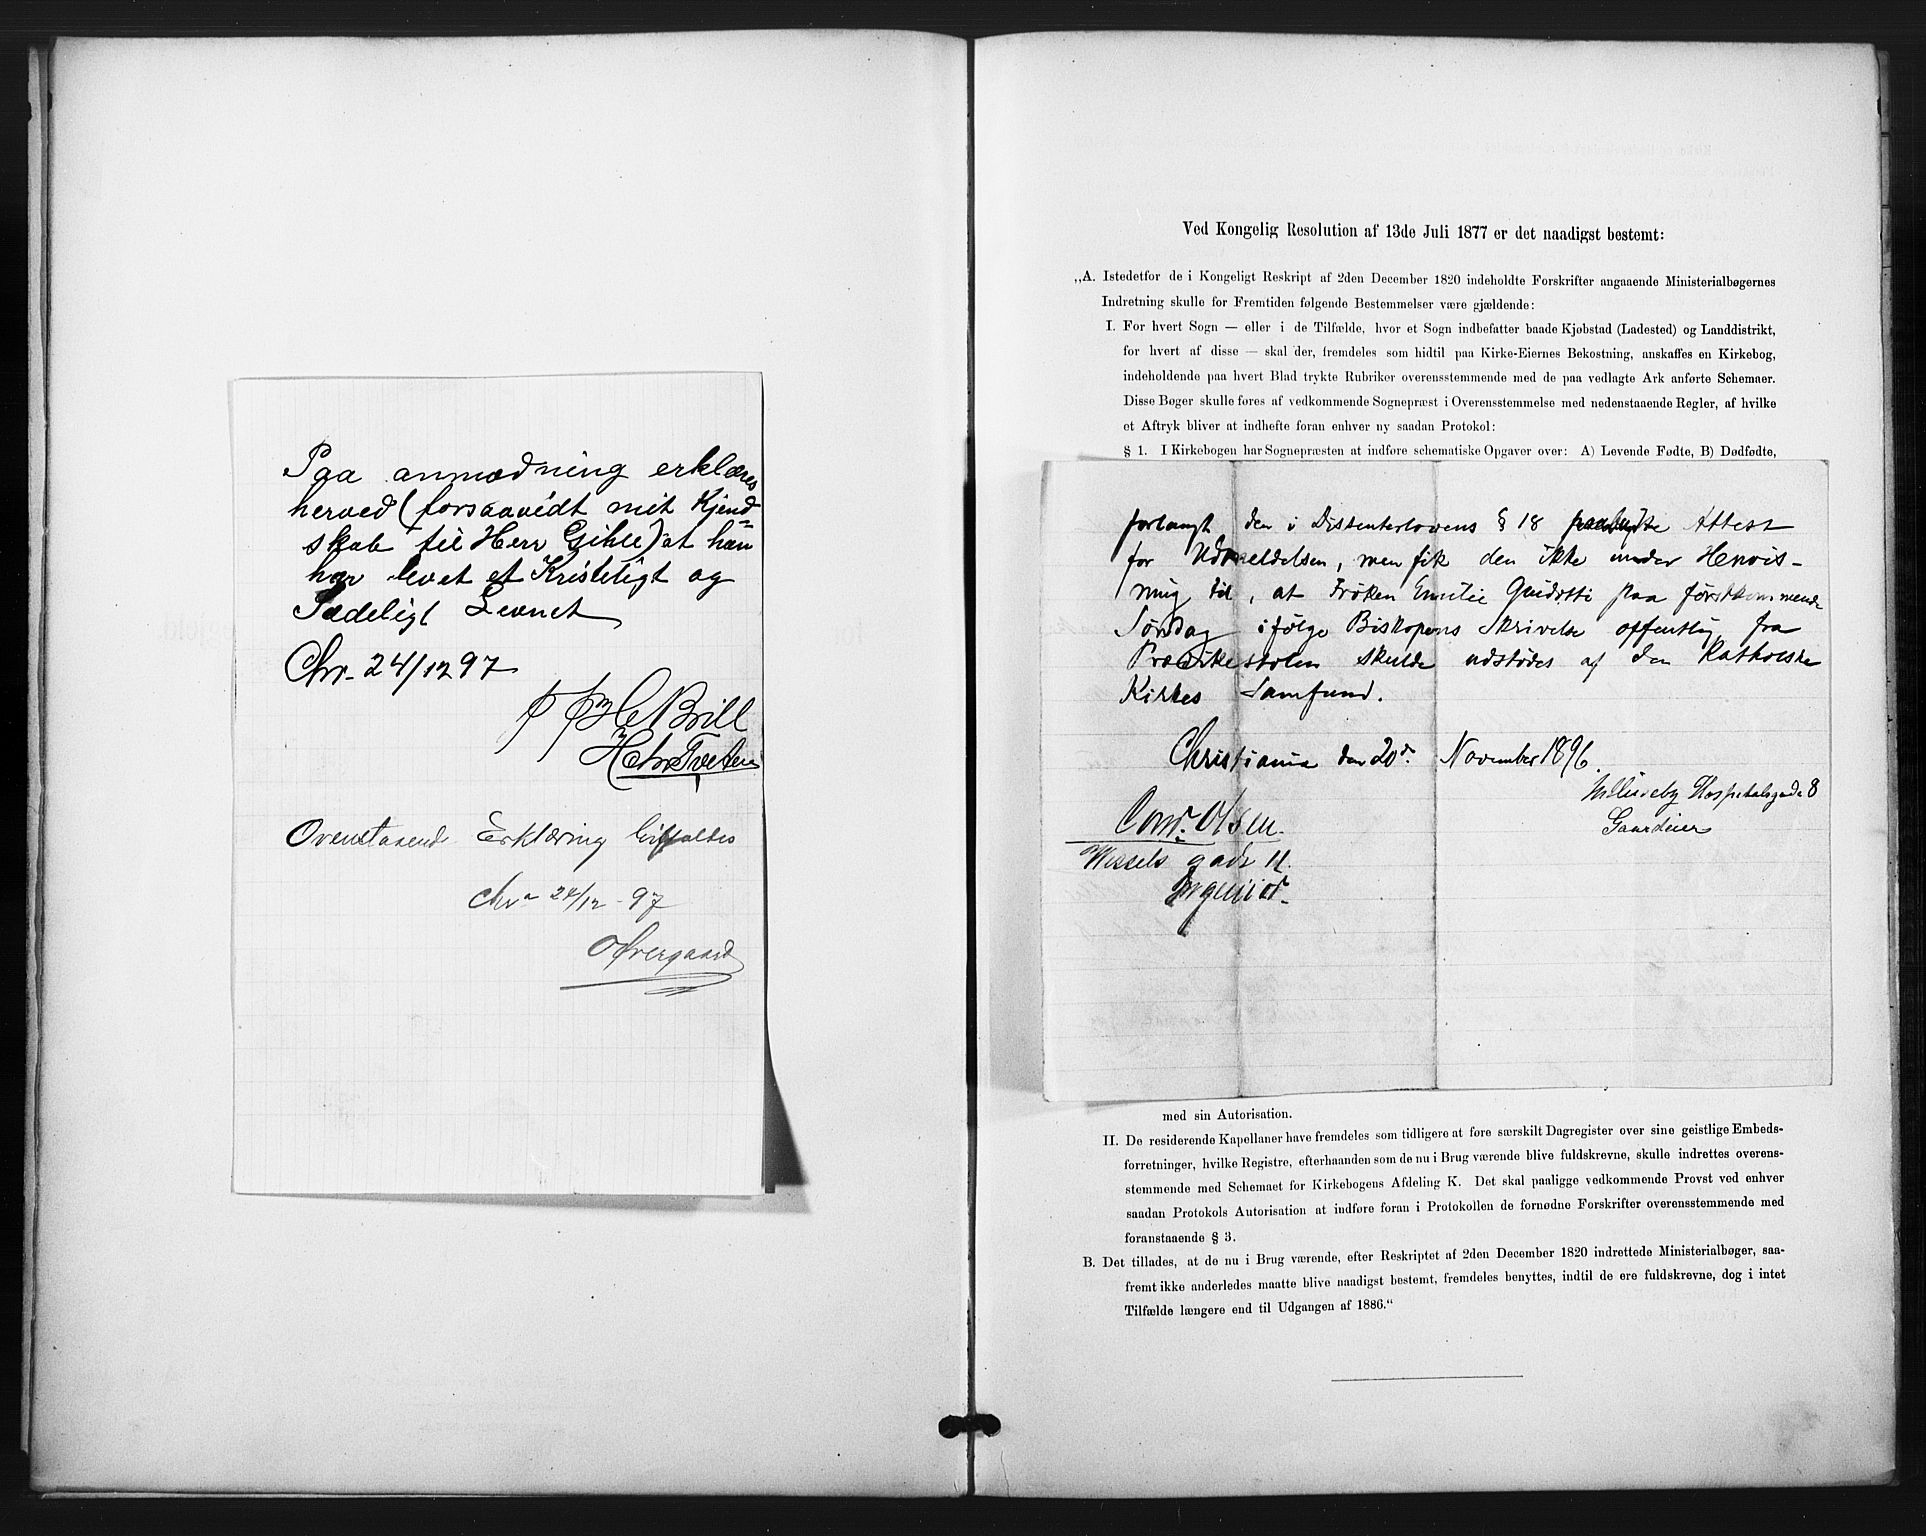 Paa anmodning erklæres
herved (forsaavidt mit Kjend=
skab til Herr Gihle) at han
har levet et Kristeligt og
Sædeligt Levnet
Chr. 24/12 97
pp H C Brill
Ovenstaaende Erklæring
Chra 24/12 - 97
Overgaard
Ved Kongelig Resolution af 13de Juli 1877 er det naadigst bestemt:
„A. Istedetfor de i Kongeligt Reskript af 2den December 1820 indeholdte Forskrifter angaaende Ministerialbøgernes
Indretning skulle for Fremtiden følgende Bestemmelser være gjældende:
I. For hvert Sogn — eller i de Tilfælde, hvor et Sogn indbefatter baade Kjøbstad (Ladested) og Landdistrikt,
for hvert af disse — skal der, fremdeles som hidtil paa Kirke-Eiernes Bekostning, anskaffes en Kirkebog,
indeholdende paa hvert Blad trykte Rubriker overensstemmende med de paa vedlagte Ark anførte Schemaer.
Disse Bøger skulle føres af vedkommende Sognepræst i Overensstemmelse med nedenstaaende Regler, af hvilke
et Aftryk bliver at indhefte foran enhver ny saadan Protokol:
§ 1. I Kirkebogen har Sognepræsten at indføre schematiske Opgaver over: A) Levende Fødte, B) Dødfødte,
forlangt den i Dissenterlovens § 18 paabudte Attest
for Udmeldelsen, men fik den ikke under Henvis-
ning til, at Frøken Emilie Guidotti paa førstkommende
Søndag ifølge Biskopens Skrivelse offentlig fra
Prædikestolen skulde udstødes af den Katholske
Kirkes Samfund.
Christiania den 20de November 1896.
Hospitalsgade 8
Gaardeier
Conr. Olsen.
Wessels gade 11.
Ingeniør.
med sin Autorisation.
II. De residerende Kapellaner have fremdeles som tidligere at føre særskilt Dagregister over sine geistlige Embeds-
forretninger, hvilke Registre, efterhaanden som de nu i Brug værende blive fuldskrevne, skulle indrettes overens-
stemmende med Schemaet for Kirkebogens Afdeling K. Det skal paaligge vedkommende Provst ved enhver
saadan Protokols Autorisation at indføre foran i Protokollen de fornødne Forskrifter overensstemmende med
foranstaaende § 3.
B. Det tillades, at de nu i Brug værende, efter Reskriptet af 2den December 1820 indrettede Ministerialbøger, saa-
fremt ikke anderledes maatte blive naadigst bestemt, fremdeles benyttes, indtil de ere fuldskrevne, dog i intet
Tilfælde længere end til Udgangen af 1886.“